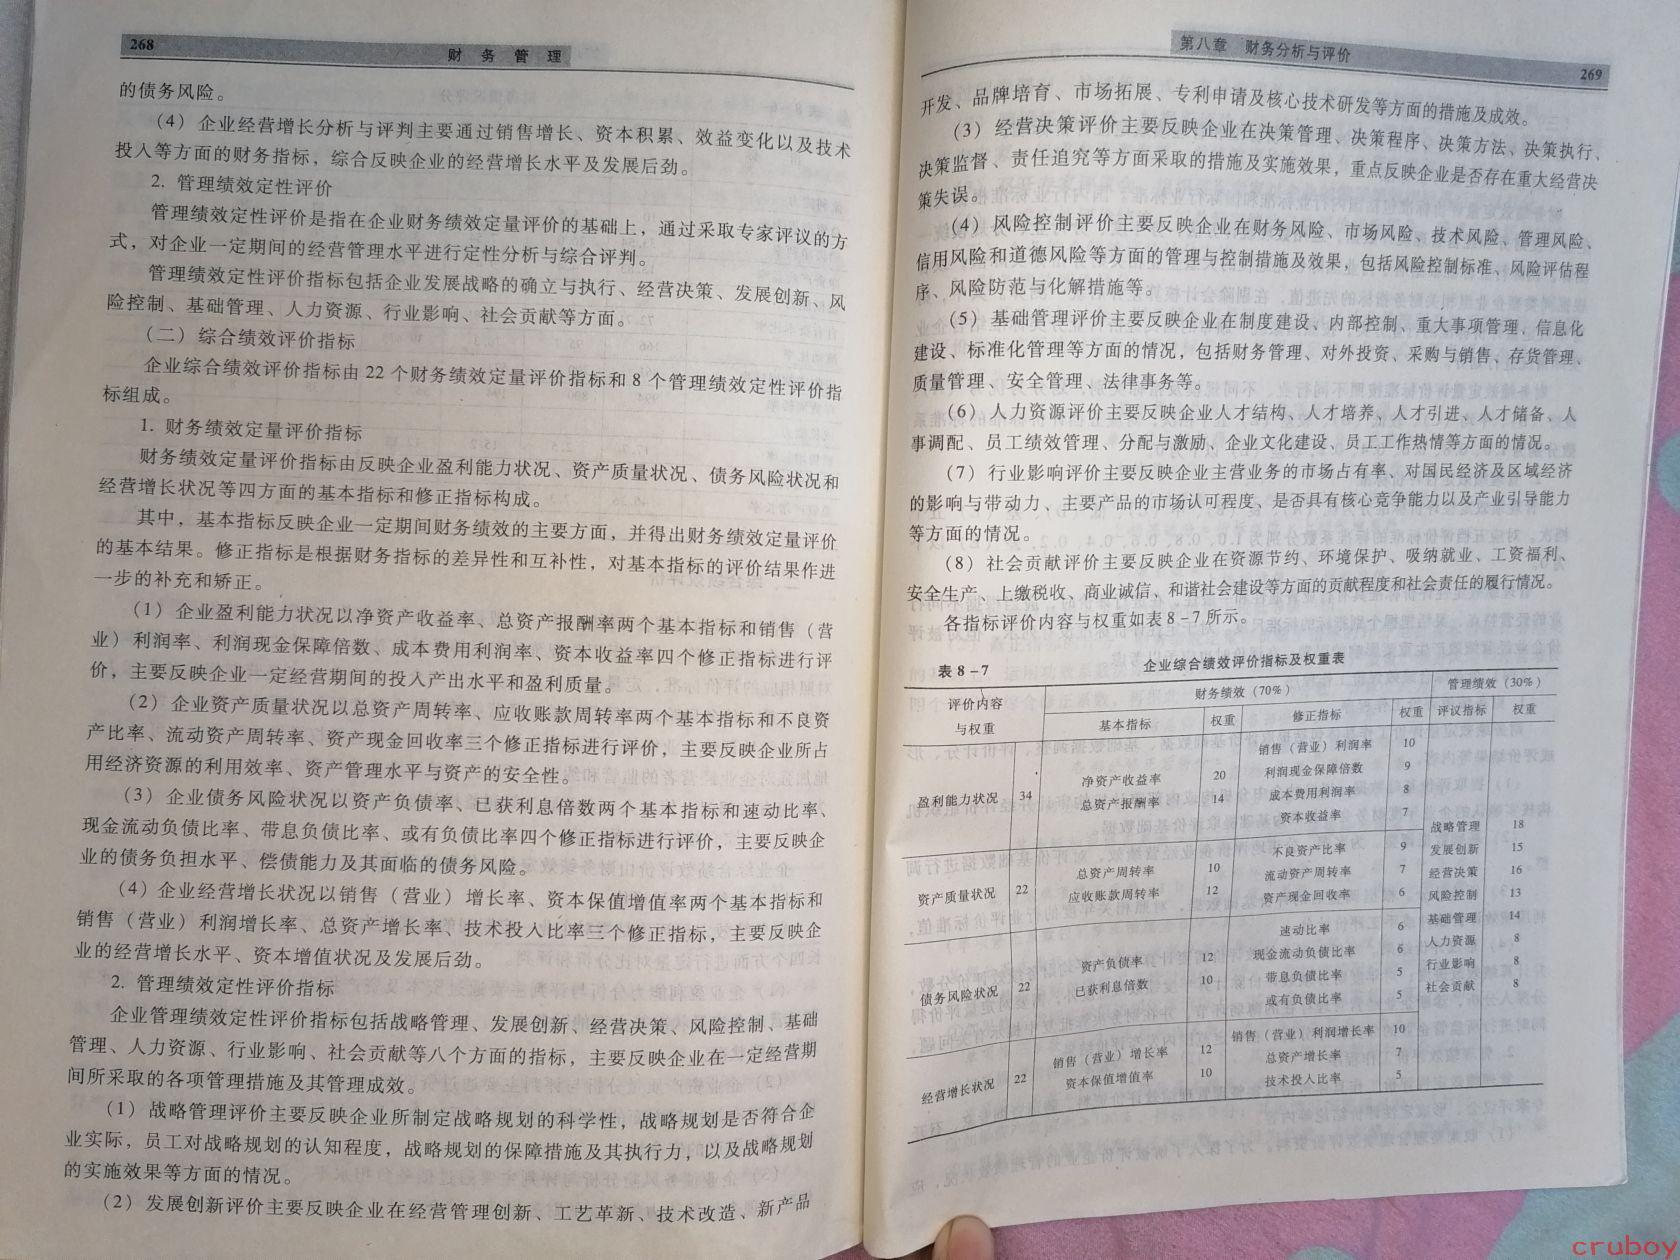 268
财务管理
的债务风险。
（4）企业经营增长分析与评判主要通过销售增长、资本积累、效益变化以及技术
投入等方面的财务指标，综合反映企业的经营增长水平及发展后劲。
2. 管理绩效定性评价
管理绩效定性评价是指在企业财务绩效定量评价的基础上，通过采取专家评议的方
式，对企业一定期间的经营管理水平进行定性分析与综合评判。
管理绩效定性评价指标包括企业发展战略的确立与执行、经营决策、发展创新、风
险控制、基础管理、人力资源、行业影响、社会贡献等方面。
（二）综合绩效评价指标
企业综合绩效评价指标由 22 个财务绩效定量评价指标和 8 个管理绩效定性评价指
标组成。
1. 财务绩效定量评价指标
财务绩效定量评价指标由反映企业盈利能力状况、资产质量状况、债务风险状况和
经营增长状况等四方面的基本指标和修正指标构成。
其中，基本指标反映企业一定期间财务绩效的主要方面，并得出财务绩效定量评价
的基本结果。修正指标是根据财务指标的差异性和互补性，对基本指标的评价结果作进
一步的补充和矫正。
（1）企业盈利能力状况以净资产收益率、总资产报酬率两个基本指标和销售（营
业）利润率、利润现金保障倍数、成本费用利润率、资本收益率四个修正指标进行评
价，主要反映企业一定经营期间的投入产出水平和盈利质量。
（2）企业资产质量状况以总资产周转率、应收账款周转率两个基本指标和不良资
产比率、流动资产周转率、资产现金回收率三个修正指标进行评价，主要反映企业所占
用经济资源的利用效率、资产管理水平与资产的安全性。
（3）企业债务风险状况以资产负债率、已获利息倍数两个基本指标和速动比率、
现金流动负债比率、带息负债比率、或有负债比率四个修正指标进行评价，主要反映企
业的债务负担水平、偿债能力及其面临的债务风险。
（4）企业经营增长状况以销售（营业）增长率、资本保值增值率两个基本指标和
销售（营业）利润增长率、总资产增长率、技术投入比率三个修正指标，主要反映企
业的经营增长水平、资本增值状况及发展后劲。
2. 管理绩效定性评价指标
企业管理绩效定性评价指标包括战略管理、发展创新、经营决策、风险控制、基础
管理、人力资源、行业影响、社会贡献等八个方面的指标，主要反映企业在一定经营期
间所采取的各项管理措施及其管理成效。
（1）战略管理评价主要反映企业所制定战略规划的科学性，战略规划是否符合企
业实际，员工对战略规划的认知程度，战略规划的保障措施及其执行力，以及战略规划
的实施效果等方面的情况。
（2）发展创新评价主要反映企业在经营管理创新、工艺革新、技术改造、新产品
第八章 财务分析与评价
269
开发、品牌培育、市场拓展、专利申请及核心技术研发等方面的措施及成效。
（3）经营决策评价主要反映企业在决策管理、决策程序、决策方法、决策执行、
决策监督、责任追究等方面采取的措施及实施效果，重点反映企业是否存在重大经营决
策失误。
（4）风险控制评价主要反映企业在财务风险、市场风险、技术风险、管理风险、
信用风险和道德风险等方面的管理与控制措施及效果，包括风险控制标准、风险评估程
序、风险防范与化解措施等。
（5）基础管理评价主要反映企业在制度建设、内部控制、重大事项管理、信息化
建设、标准化管理等方面的情况，包括财务管理、对外投资、采购与销售、存货管理、
质量管理、安全管理、法律事务等。
（6）人力资源评价主要反映企业人才结构、人才培养、人才引进、人才储备、人
事调配、员工绩效管理、分配与激励、企业文化建设、员工工作热情等方面的情况。
（7）行业影响评价主要反映企业主营业务的市场占有率、对国民经济及区域经济
的影响与带动力、主要产品的市场认可程度、是否具有核心竞争能力以及产业引导能力
等方面的情况。
（8）社会贡献评价主要反映企业在资源节约、环境保护、吸纳就业、工资福利、
安全生产、上缴税收、商业诚信、和谐社会建设等方面的贡献程度和社会责任的履行情况。
各指标评价内容与权重如表 8-7 所示。
表 8-7 企业综合绩效评价指标及权重表
评价内容与权重 财务绩效（70%） 管理绩效（30%）
基本指标 权重 修正指标 权重 评议指标 权重
盈利能力状况 34
净资产收益率 20
总资产报酬率 14
销售（营业）利润率 10
利润现金保障倍数 9
成本费用利润率 8
资本收益率 7
资产质量状况 22
总资产周转率 10
应收账款周转率 12
不良资产比率 9
流动资产周转率 7
资产现金回收率 6
债务风险状况 22
资产负债率 12
已获利息倍数 10
速动比率 6
现金流动负债比率 6
带息负债比率 5
或有负债比率 5
经营增长状况 22
销售（营业）增长率 12
资本保值增值率 10
销售（营业）利润增长率 10
总资产增长率 7
技术投入比率 5
战略管理 18
发展创新 15
经营决策 16
风险控制 13
基础管理 14
人力资源 8
行业影响 8
社会贡献 8
cruboy